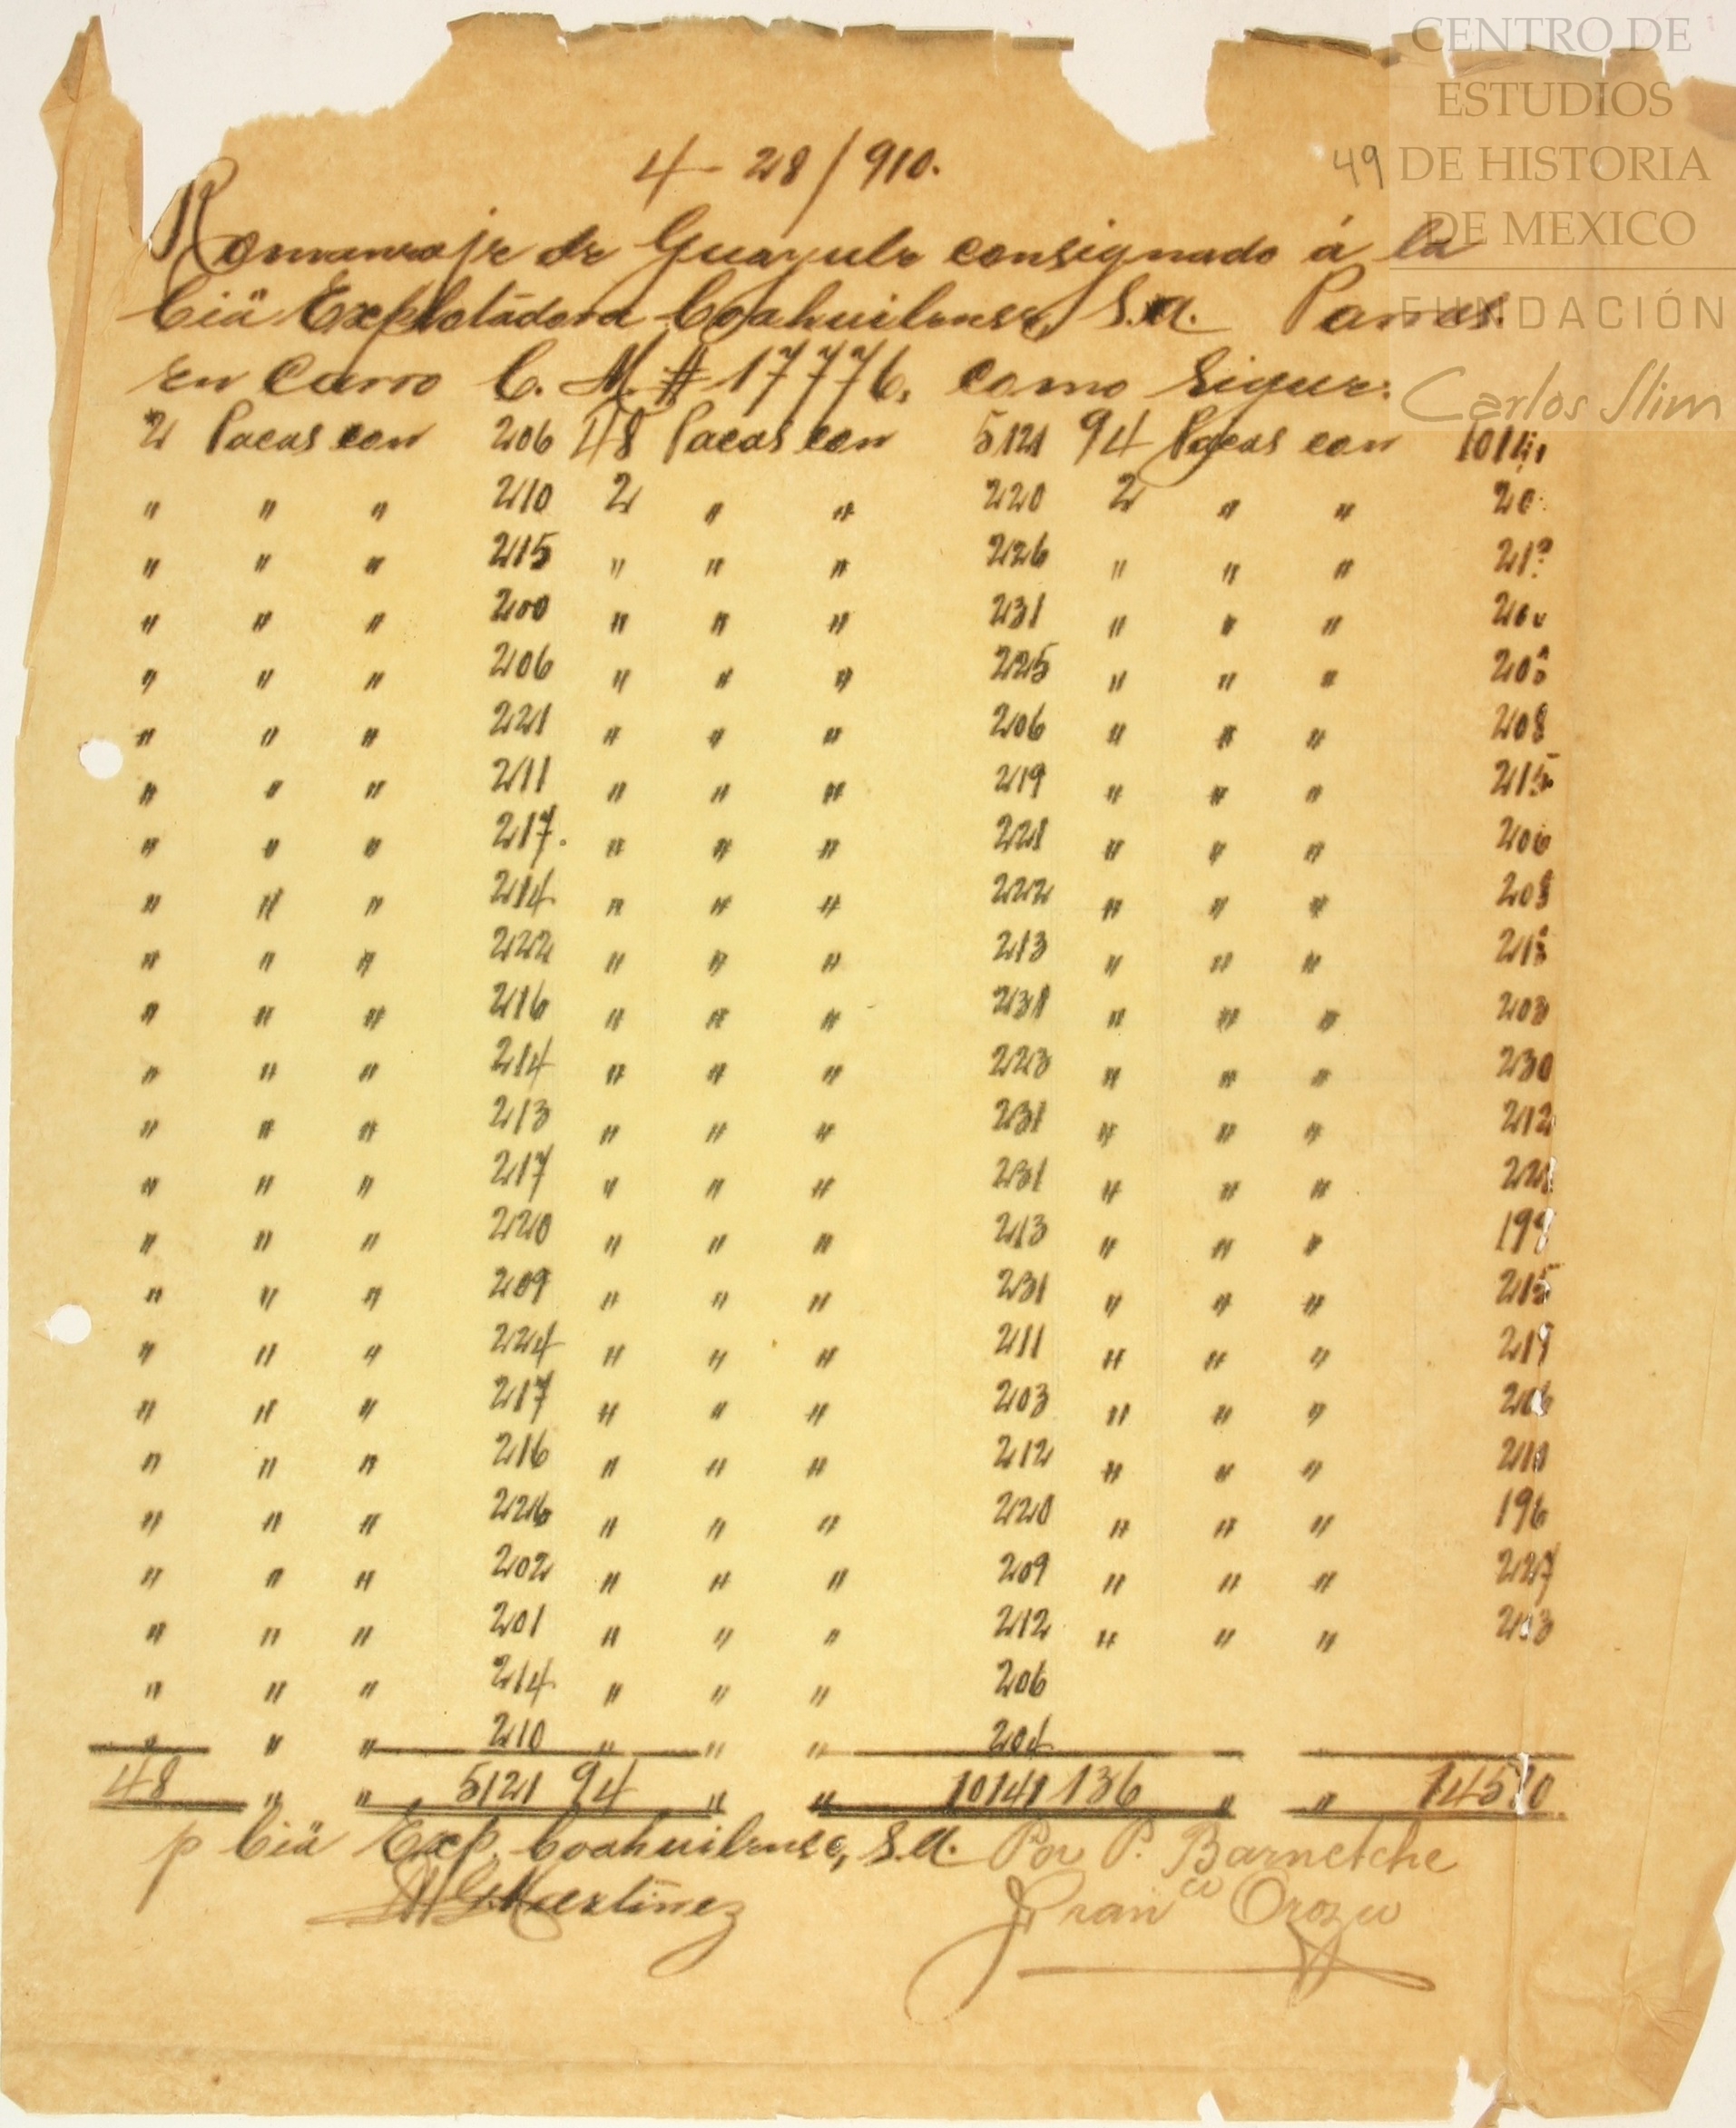 CENTRO DE
ESTUDIOS
DE HISTORIA
DE MEXICO
FUNDACIÓN
Carlos Slim
49
4-28/910.
Romanraje de Guayule consignado á la
Ciä Explotadora Coahuilense, S.A. Parras.
en Carro C. M. # 17776. como sigue:
2 Pacas con 206 48 Pacas con 5121 94 Pacas con
" " " 210 2 " " 220 2 " "
" " " 215 " " " 226 " " "
" " " 200 " " " 231 " " "
" " " 206 " " " 225 " " "
" " " 221 " " " 206 " " " 208
" " " 211 " " " 219 " " " 215
" " " 217. " " " 221 " " " 206
" " " 214 " " " 222 " " " 208
" " " 222 " " " 213 " " "
" " " 216 " " " 231 " " " 203
" " " 214 " " " 223 " " " 230
" " " 213 " " " 231 " " " 212
" " " 217 " " " 231 " " "
" " " 220 " " " 213 " " "
" " " 209 " " " 231 " " " 215
" " " 224 " " " 211 " " "
" " " 217 " " " 203 " " "
" " " 216 " " " 212 " " "
" " " 226 " " " 220 " " " 196
" " " 202 " " " 209 " " " 227
" " " 201 " " " 212 " " " 213
" " " 214 " " " 206
" " " 210 " " " 204
48 " " 5121 94 " " 10141 136 " "
p Ciä Exp. Coahuilense, S.A. Por P. Barnetche
G. Martinez Franco Orozco